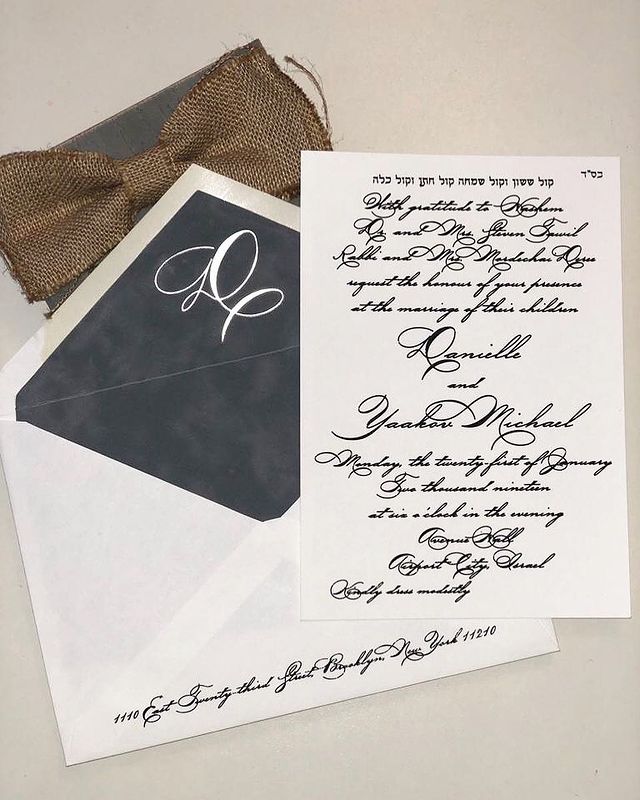 בס״ד
קול ששון וקול שמחה קול חתן וקול כלה
With gratitude to Hashem
Dr. and Mrs. Steven Tawil
Rabbi and Mrs. Mordechai
request the honour of your presence
at the marriage of their children
Danielle
and
Yaakov Michael
Monday, the twenty-first of January
Two thousand nineteen
at six o'clock in the evening
Avenue Hall
Airport City, Israel
Kindly dress modestly
1110 East Twenty-third Street, Brooklyn, New York 11210